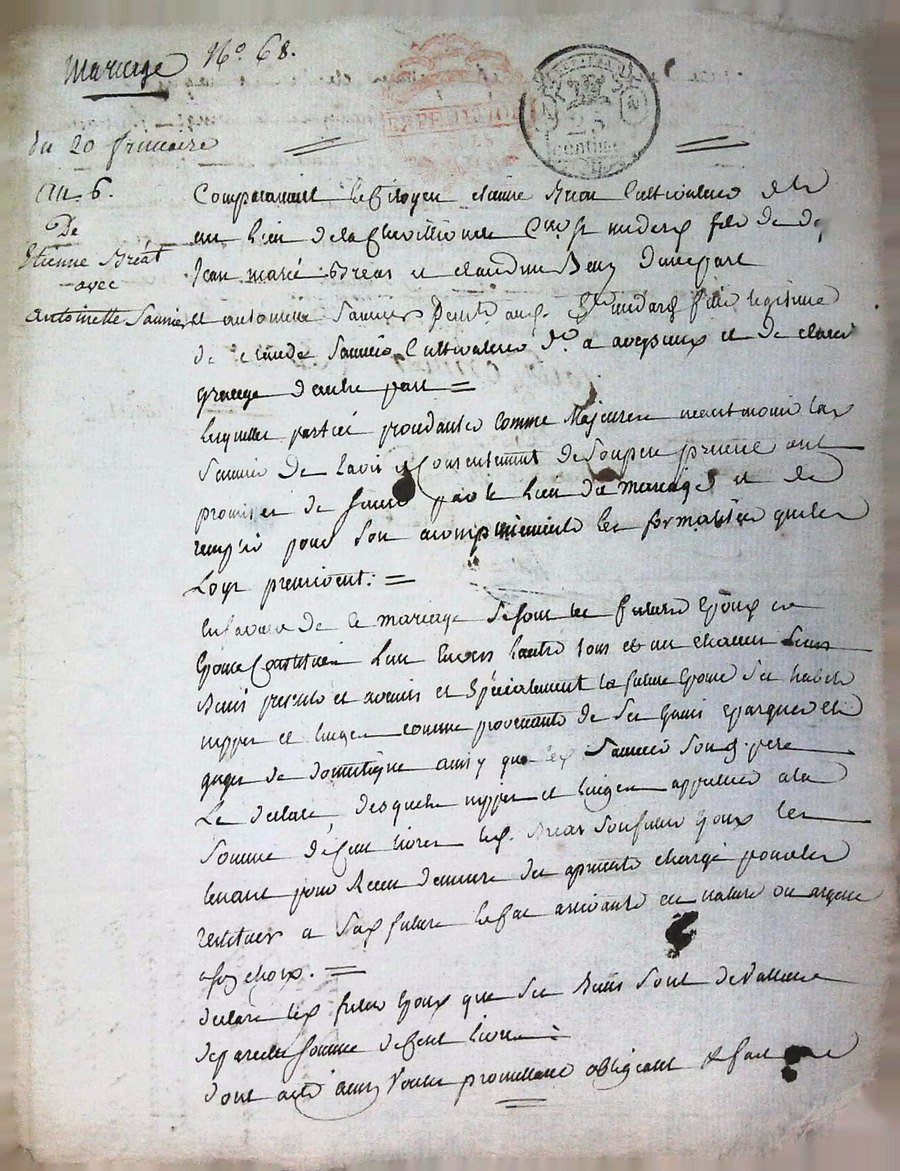 Mariage N.° 68.
EXPEDITION
25
centime
du 20 frimaire
an 6.
De
Etienne Bréat
avec
Antoinette Saunier
Comparaissent le Citoyen etienne Breas Cultivateur
au lieu de la Chevillionne fils de
Jean marie Breas et claudine dune part
et antoinette Saunier fille legitime
de claude Saunier Cultivateur a aveyzieux et de
grange d'autre part =
lesquelles parties procedantes comme Majeures neantmoins la
Saunier de l'avis et Consentement de Son pere presens ont
promis de par le lien du mariage et de
remplir pour Son acomplissement les formalités que les
Loys prescrivent. =
en faveur de ce mariage Se font les futurs Epoux en
Epouse Constitution l'un Envers l'autre tous et un chacun Leurs
Biens presents et avenirs et Specialement la future Epouse Ses habits
nippes et linges comme provenants de Ses Gains Epargnes et
gages de domestique ainsy que Saunier Son pere
Le declare, desquels nippes et linges a la
Somme de Cent livres Breas Son futur Epoux Les
tenant pour Recu demeure des apresents chargé pour les
restituer a Sa future le Cas arrivant en nature ou argent
choix. =
declare futur Epoux que Ses Biens Sont de Valleur
de pareille Somme de Cent livres
dont acte ainsy Voulu promettant obligeant